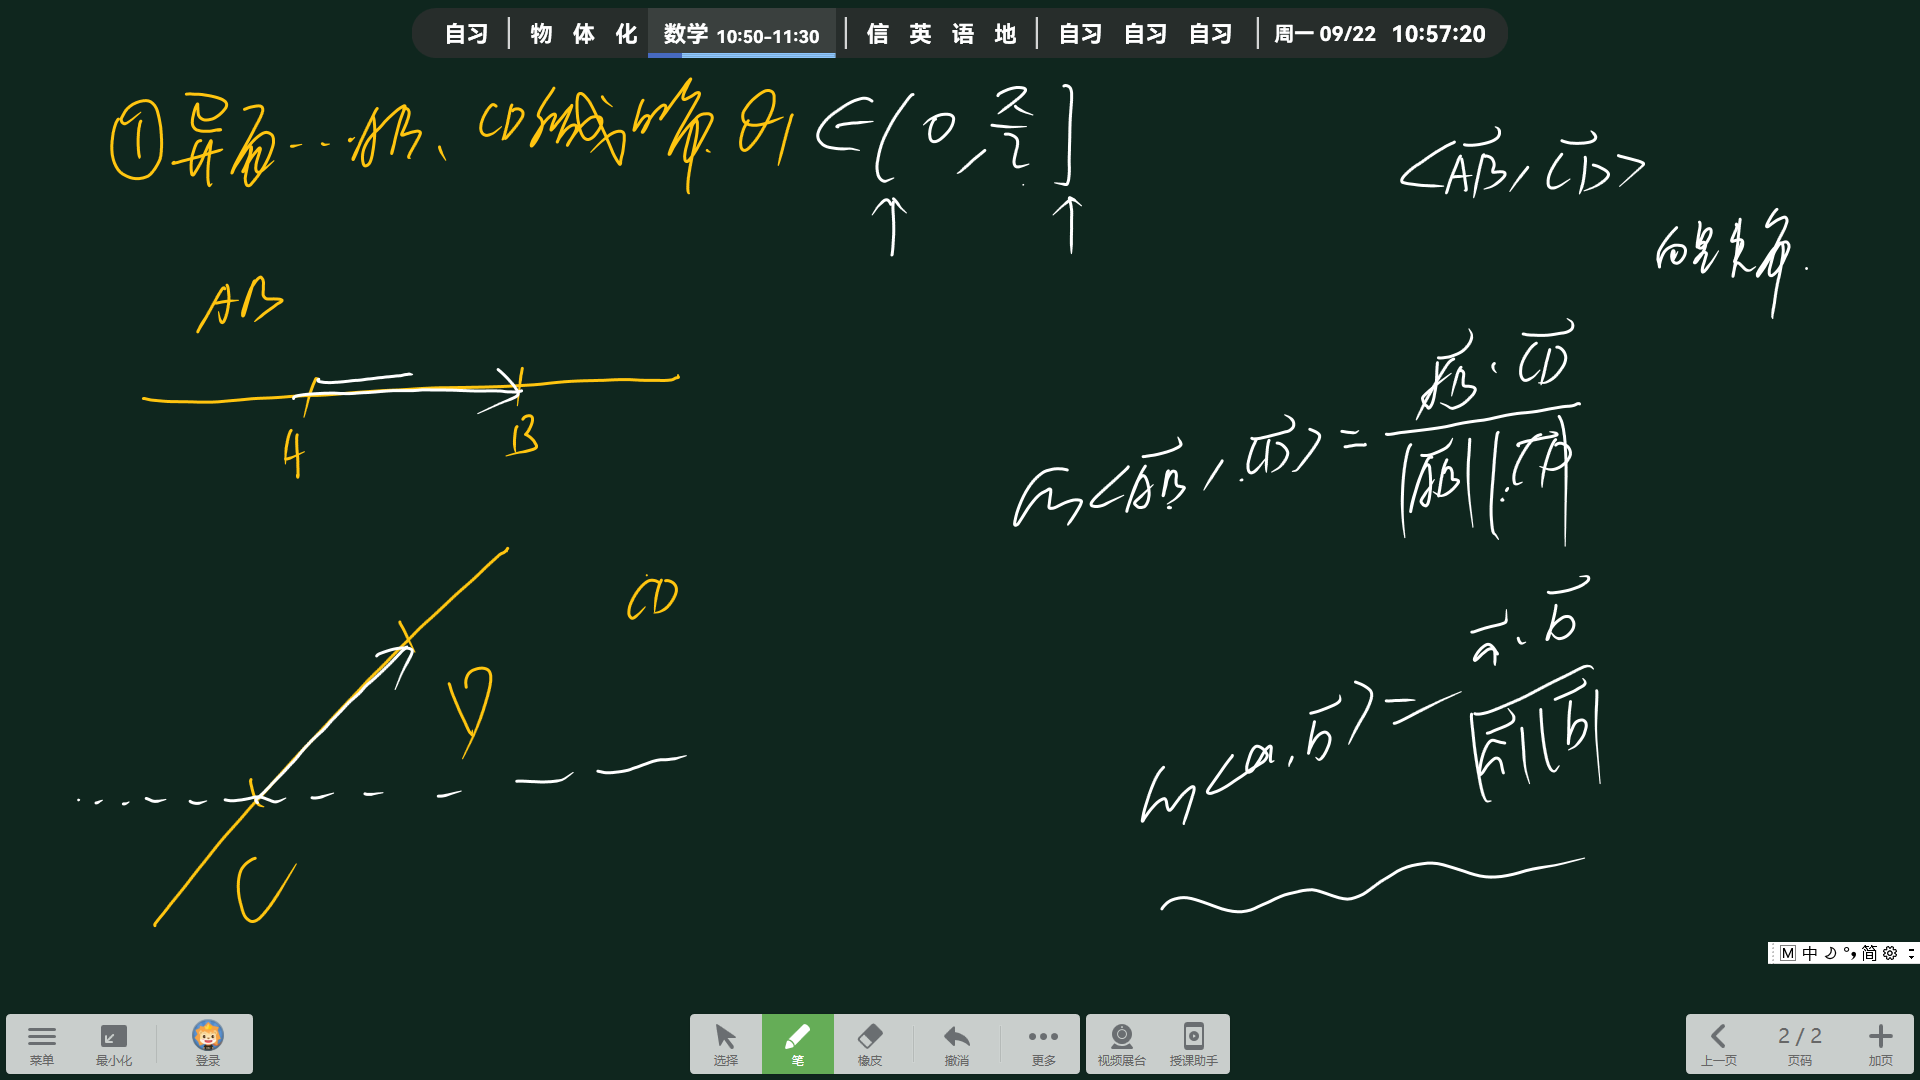 自习 | 物 体 化 数学 10:50-11:30 | 信 英 语 地 | 自习 自习 自习 | 周一 09/22 10:57:20
① 异面…AB、CD 所成的角 θ₁ ∈ (0, π/2]
<AB, CD>
向量夹角.
AB
A B
cos<AB, CD> = AB · CD / |AB| |CD|
CD
D
C
cos<a, b> = a · b / |a| |b|
M 中 简
菜单 最小化 登录 选择 笔 橡皮 撤消 更多 视频展台 授课助手 上一页 2 / 2 页码 加页